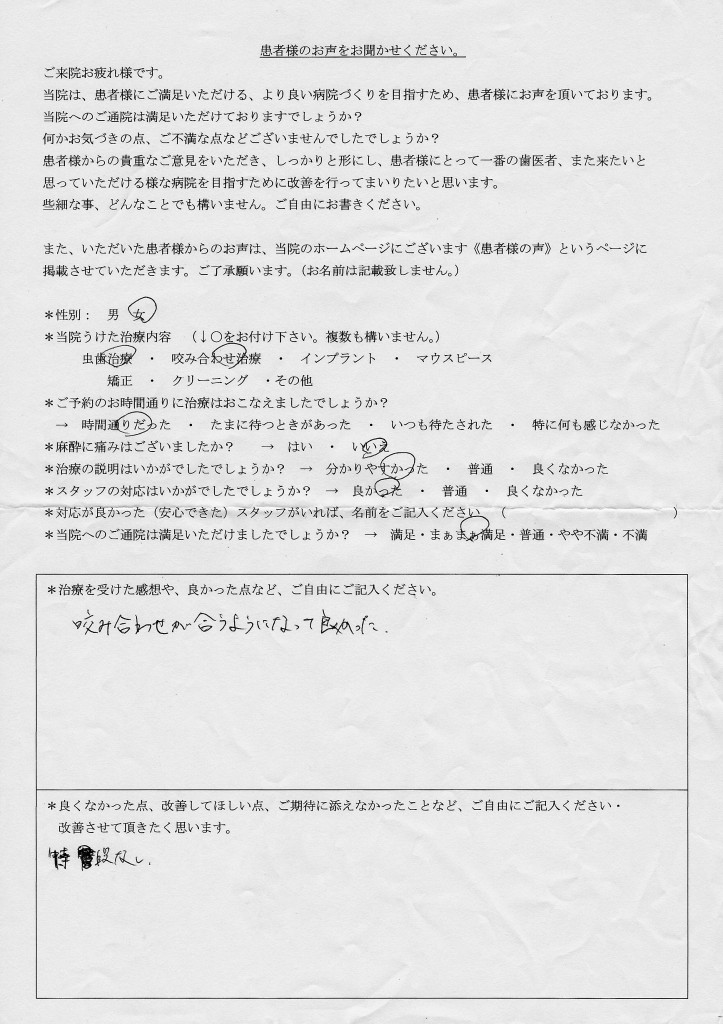 患者様のお声をお聞かせください。
ご来院お疲れ様です。
当院は、患者様にご満足いただける、より良い病院づくりを目指すため、患者様にお声を頂いております。
当院へのご通院は満足いただけておりますでしょうか？
何かお気づきの点、ご不満な点などございませんでしたでしょうか？
患者様からの貴重なご意見をいただき、しっかりと形にし、患者様にとって一番の歯医者、また来たいと
思っていただける様な病院を目指すために改善を行ってまいりたいと思います。
些細な事、どんなことでも構いません。ご自由にお書きください。
また、いただいた患者様からのお声は、当院のホームページにございます《患者様の声》というページに
掲載させていただきます。ご了承願います。（お名前は記載致しません。）
＊性別： 男 女
＊当院うけた治療内容 （↓○をお付け下さい。複数も構いません。）
虫歯治療 ・ 咬み合わせ治療 ・ インプラント ・ マウスピース
矯正 ・ クリーニング ・その他
＊ご予約のお時間通りに治療はおこなえましたでしょうか？
→ 時間通りだった ・ たまに待つときがあった ・ いつも待たされた ・ 特に何も感じなかった
＊麻酔に痛みはございましたか？ → はい ・ いいえ
＊治療の説明はいかがでしたでしょうか？ → 分かりやすかった ・ 普通 ・ 良くなかった
＊スタッフの対応はいかがでしたでしょうか？ → 良かった ・ 普通 ・ 良くなかった
＊対応が良かった（安心できた）スタッフがいれば、名前をご記入ください （ ）
＊当院へのご通院は満足いただけましたでしょうか？ → 満足・まぁまぁ満足・普通・やや不満・不満
＊治療を受けた感想や、良かった点など、ご自由にご記入ください。
咬み合わせが合うようになって良かった.
＊良くなかった点、改善してほしい点、ご期待に添えなかったことなど、ご自由にご記入ください・
改善させて頂きたく思います。
特段なし.